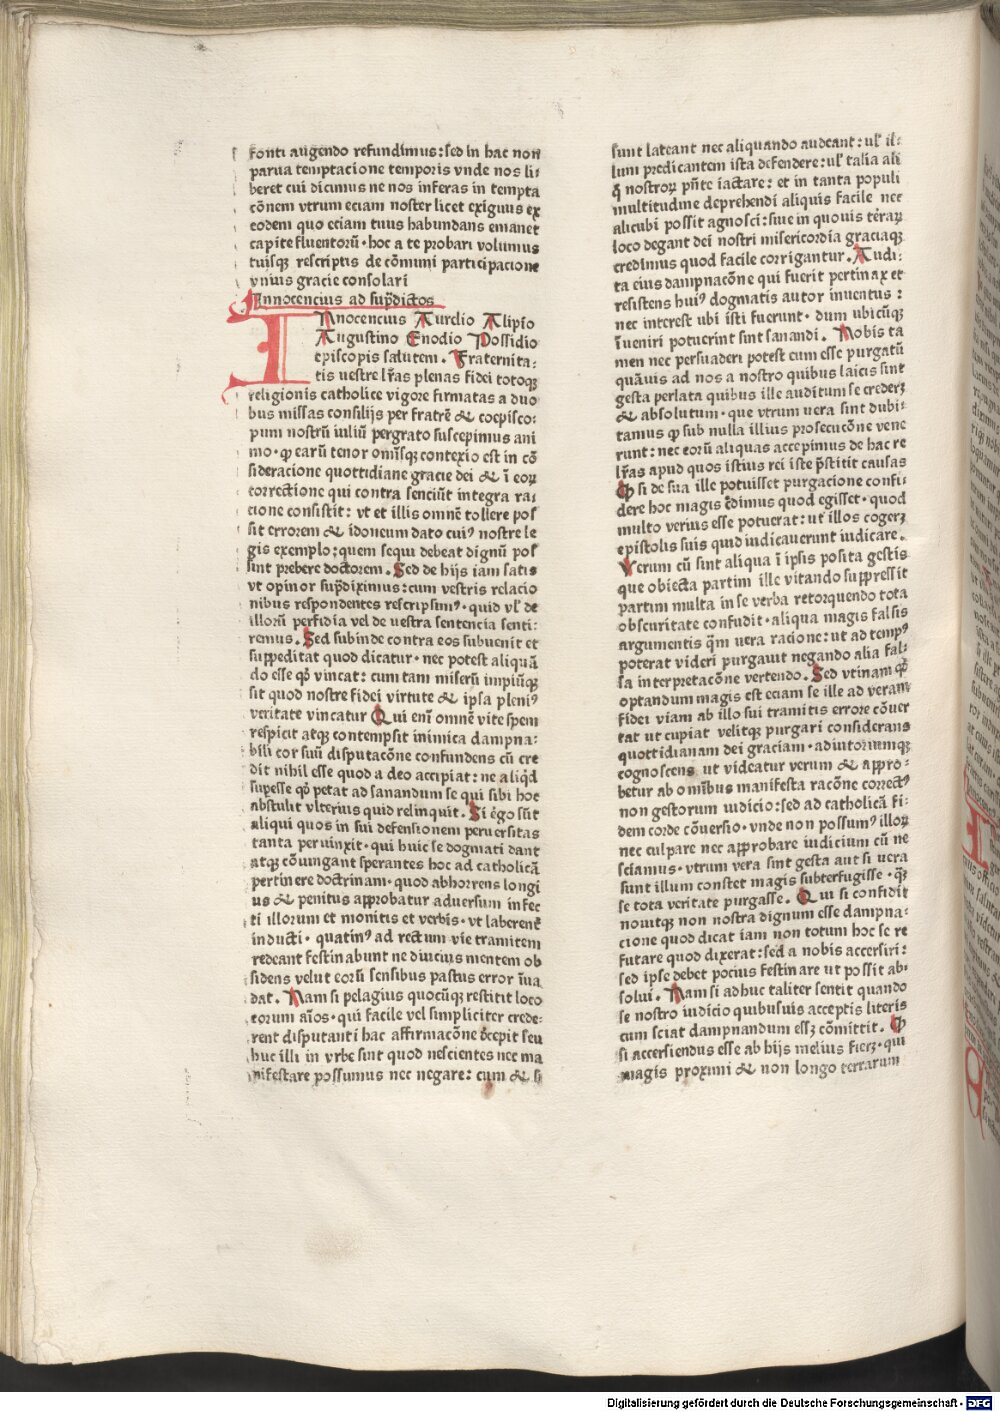 fonti augendo refundimus : sed in hac non
parua temptacione temporis vnde nos li⸗
beret cui dicimus ne nos inferas in tempta
cōnem vtrum eciam noster licet exiguus ex
eodem quo eciam tuus habundans emanet
capite fluentorū · hoc a te probari volumus
tuisqꝫ rescriptis de cōmuni participacione
vnius gracie consolari
Innocencius ad sup̄dictos
INnocencius Aurelio Alipio
Augustino Enodio Possidio
episcopis salutem . Fraternita⸗
tis uestre lr̄as plenas fidei totoqꝫ
religionis catholice vigore firmatas a duo
bus missas consilijs per fratrē & coepisco⸗
pum nostrū iuliū pergrato suscepimus ani
mo · ꝙ earū tenor omīsqꝫ contexio est in cō
sideracione quottidiane gracie dei & ī eoꝝ
correctione qui contra senciūt integra ra⸗
cione consistit : vt et illis omnē tollere pos
sit errorem & idoneum dato cuiꝰ nostre le
gis exemplo : quem sequi debeat dignū pos
sint prebere doctorem . Sed de hijs iam satis
vt opinor sup̄diximus : cum vestris relacio
nibus respondentes rescripsimꝰ · quid vl̓ de
illorū perfidia vel de uestra sentencia senti⸗
remus . Sed subinde contra eos subuenit et
suppeditat quod dicatur · nec potest aliquā
do esse qd̓ vincat : cum tam miserū impiūqꝫ
sit quod nostre fidei virtute & ipsa pleniꝰ
veritate vincatur Qui enī omnē vite spem
respicit atqꝫ contempsit inimica dampna⸗
bili cor suū disputacōne confundens cū cre
dit nihil esse quod a deo accipiat : ne aliqd̓
supesse qd̓ petat ad sanandum se qui sibi hoc
abstulit vlterius quid relinquit . Si ergo sūt
aliqui quos in sui defensionem peruersitas
tanta peruinxit · qui huic se dogmati dant
atqꝫ cōiungant sperantes hoc ad catholicā
pertinere doctrinam · quod abhorrens longi
us & penitus approbatur aduersum infec
ti illorum et monitis et verbis · vt laberent̓
inducti · quatinꝰ ad rectum vie tramitem
redeant festinabunt ne diucius mentem ob
sidens velut eorū sensibus pastus error īua
dat . Nam si pelagius quocūqꝫ restitit loco
eorum aīos · qui facile vel simpliciter crede⸗
rent disputanti hac affirmacōne decepit seu
huc illi in vrbe sint quod nescientes nec ma
nifestare possumus nec negare : cum & si
sunt lateant nec aliquando audeant : ul̓ il⸗
lum predicantem ista defendere : ul̓ talia ali
q̄ nostroꝝ pn̄te iactare : et in tanta populi
multitudine deprehendi aliquis facile nec
alicubi possit agnosci : siue in quouis terraꝝ
loco degant dei nostri misericordia graciaqꝫ
credimus quod facile corrigantur . Audi⸗
ta eius dampnacōne qui fuerit pertinax et
resistens huiꝰ dogmatis autor inuentus :
nec interest ubi isti fuerunt · dum ubicūqꝫ
īueniri potuerint sint sanandi . Nobis ta
men nec persuaderi potest eum esse purgatū
quāuis ad nos a nostro quibus laicis sint
gesta perlata quibus ille auditum se crederꝫ
& absolutum · que vtrum uera sint dubi⸗
tamus ꝙ sub nulla illius prosecucōne vene
runt : nec eorū aliquas accepimus de hac re
lr̄as apud quos istius rei iste p̄stitit causas
Ꝙ si de sua ille potuisset purgacione confi⸗
dere hoc magis credimus quod egisset · quod
multo verius esse poterat : ut illos cogerꝫ
epistolis suis quid iudicauerunt iudicare .
Verum cū sint aliqua ī ipsis posita gestis
que obiecta partim ille vitando suppressit
partim multa in se verba retorquendo tota
obscuritate confudit · aliqua magis falsis
argumentis q̄m uera racione : ut ad tempꝰ
poterat videri purgauit negando alia fal⸗
sa interpretacōne vertendo . Sed vtinam qd̓
optandum magis est eciam se ille ad veram
fidei viam ab illo sui tramitis errore cōuer
tat ut cupiat velitqꝫ purgari considerans
quottidianam dei graciam · adiutoriumqꝫ
cognoscens ut videatur verum & appro⸗
betur ab omībus manifesta racōne correctꝰ
non gestorum iudicio : sed ad catholicā fi⸗
dem corde cōuersio · vnde non possumꝰ illoꝝ
nec culpare nec approbare iudicium cū ne
sciamus · vtrum vera sint gesta aut si uera
sunt illum constet magis subterfugisse · q̄ꝫ
se tota veritate purgasse . Qui si confidit
nouitqꝫ non nostra dignum esse dampna⸗
cione quod dicat iam non totum hoc se re
futare quod dixerat : sed a nobis accersiri :
sed ipse debet pocius festinare ut possit ab⸗
solui . Nam si adhuc taliter sentit quando
se nostro iudicio quibusuis acceptis literis
cum sciat dampnandum essꝫ cōmittit . Ꝙ
si accersiendus esse ab hijs melius fierꝫ · qui
magis proximi & non longo terrarum
Digitalisierung gefördert durch die Deutsche Forschungsgemeinschaft - DFG